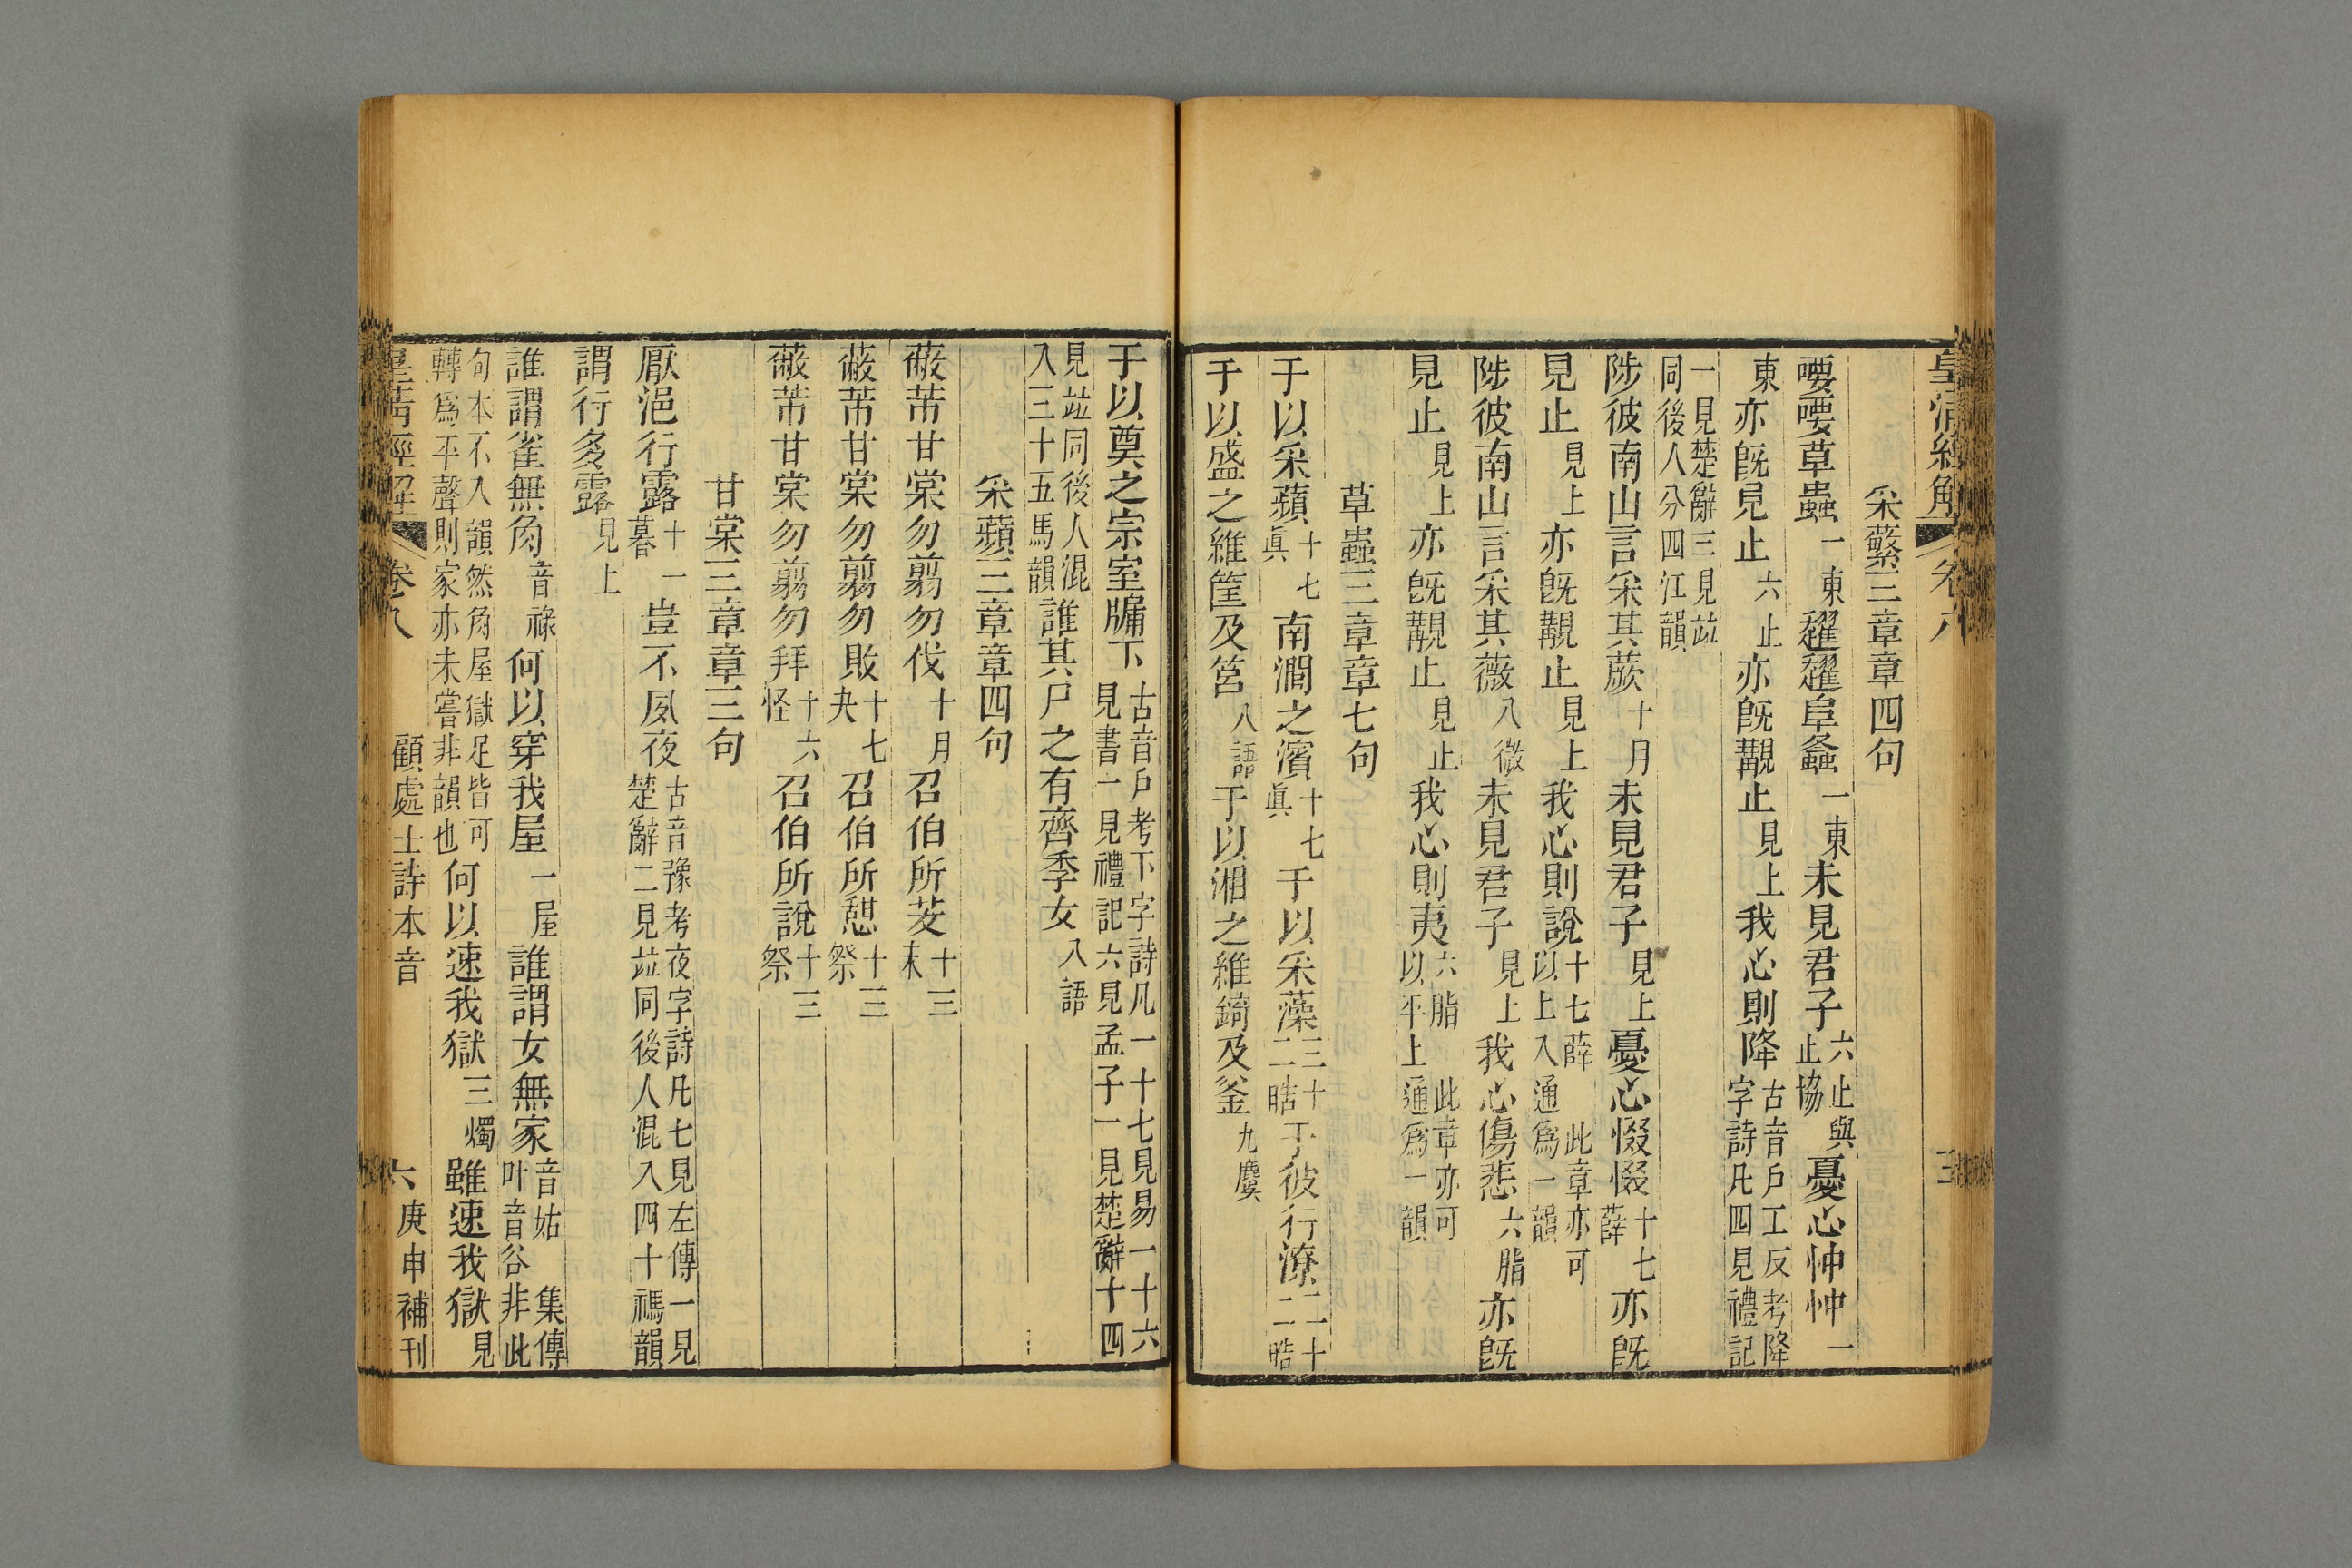 皇清經解 卷八 三
采蘩三章章四句
喓喓草蟲一東趯趯阜螽一東未見君子六止與止協憂心忡忡一
東亦旣見止六止亦旣覯止見上我心則降古音戶工反考降字詩凡四見禮記
一見楚辭三見竝同後人分四江韻
陟彼南山言采其蕨十月未見君子見上憂心惙惙十七薛亦旣
見止見上亦旣覯止見上我心則說十七薛以上入通爲一韻此章亦可
陟彼南山言采其薇八微未見君子見上我心傷悲六脂亦旣
見止見上亦旣覯止見止我心則夷六脂以平上通爲一韻此章亦可
草蟲三章章七句
于以采蘋十七眞南澗之濱十七眞于以采藻三十二晧于彼行潦三十二晧
于以盛之維筐及筥八語于以湘之維錡及釜九麌
于以奠之宗室牖下古音戶考下字詩凡一十七見易一十六見書一見禮記六見孟子一見楚辭十四
見竝同後人混入三十五馬韻誰其尸之有齊季女八語
采蘋三章章四句
蔽芾甘棠勿翦勿伐十月召伯所茇十三末
蔽芾甘棠勿翦勿敗十七夬召伯所憩十三祭
蔽芾甘棠勿翦勿拜十六怪召伯所說十三祭
甘棠三章章三句
厭浥行露十一暮豈不夙夜古音豫考夜字詩凡七見左傳一見楚辭二見竝同後人混入四十禡韻
謂行多露見上
誰謂雀無角音祿何以穿我屋一屋誰謂女無家音姑 集傳叶音谷非此
句本不入韻然角屋獄足皆可轉爲平聲則家亦未嘗非韻也何以速我獄三燭雖速我獄見
皇淸經解 卷八 顧處士詩本音 六 庚申補刊